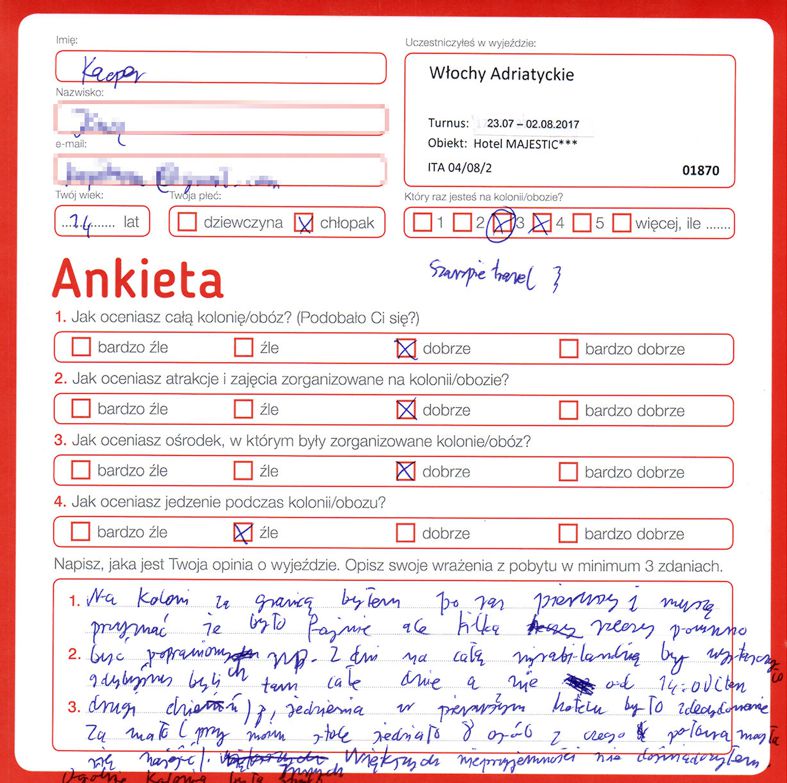 Imię:
Kacper
Uczestniczyłeś w wyjeździe:
Włochy Adriatyckie
Turnus: 23.07 – 02.08.2017
Obiekt: Hotel MAJESTIC***
ITA 04/08/2 01870
Nazwisko:
e-mail:
Twój wiek: Twoja płeć:
lat dziewczyna chłopak
Który raz jesteś na kolonii/obozie?
1 2 3 4 5 więcej, ile .......
travel
Ankieta
1. Jak oceniasz całą kolonię/obóz? (Podobało Ci się?)
bardzo źle źle dobrze bardzo dobrze
2. Jak oceniasz atrakcje i zajęcia zorganizowane na kolonii/obozie?
bardzo źle źle dobrze bardzo dobrze
3. Jak oceniasz ośrodek, w którym były zorganizowane kolonie/obóz?
bardzo źle źle dobrze bardzo dobrze
4. Jak oceniasz jedzenie podczas kolonii/obozu?
bardzo źle źle dobrze bardzo dobrze
Napisz, jaka jest Twoja opinia o wyjeździe. Opisz swoje wrażenia z pobytu w minimum 3 zdaniach.
1. Na Koloni za granicą byłem po raz pierwszy i muszę
przyznać że było fajnie ale kilka rzeczy powinno
2. być np. 2 dni na całą mirabilandię by
gdybyśmy byli tam całe dnie a nie od 14:00
3. drugi jedzenia w pierwszym hotelu było zdecydowanie
za mało (przy moim stole jedziało 8 osób z czego połowa
się najeść). większych nieprzyjemności nie doświadczyłem
Ogólnie Kolonia była